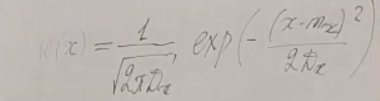 w(x) = 1/√(2πDx) exp(-(x-mx)²/2Dx)